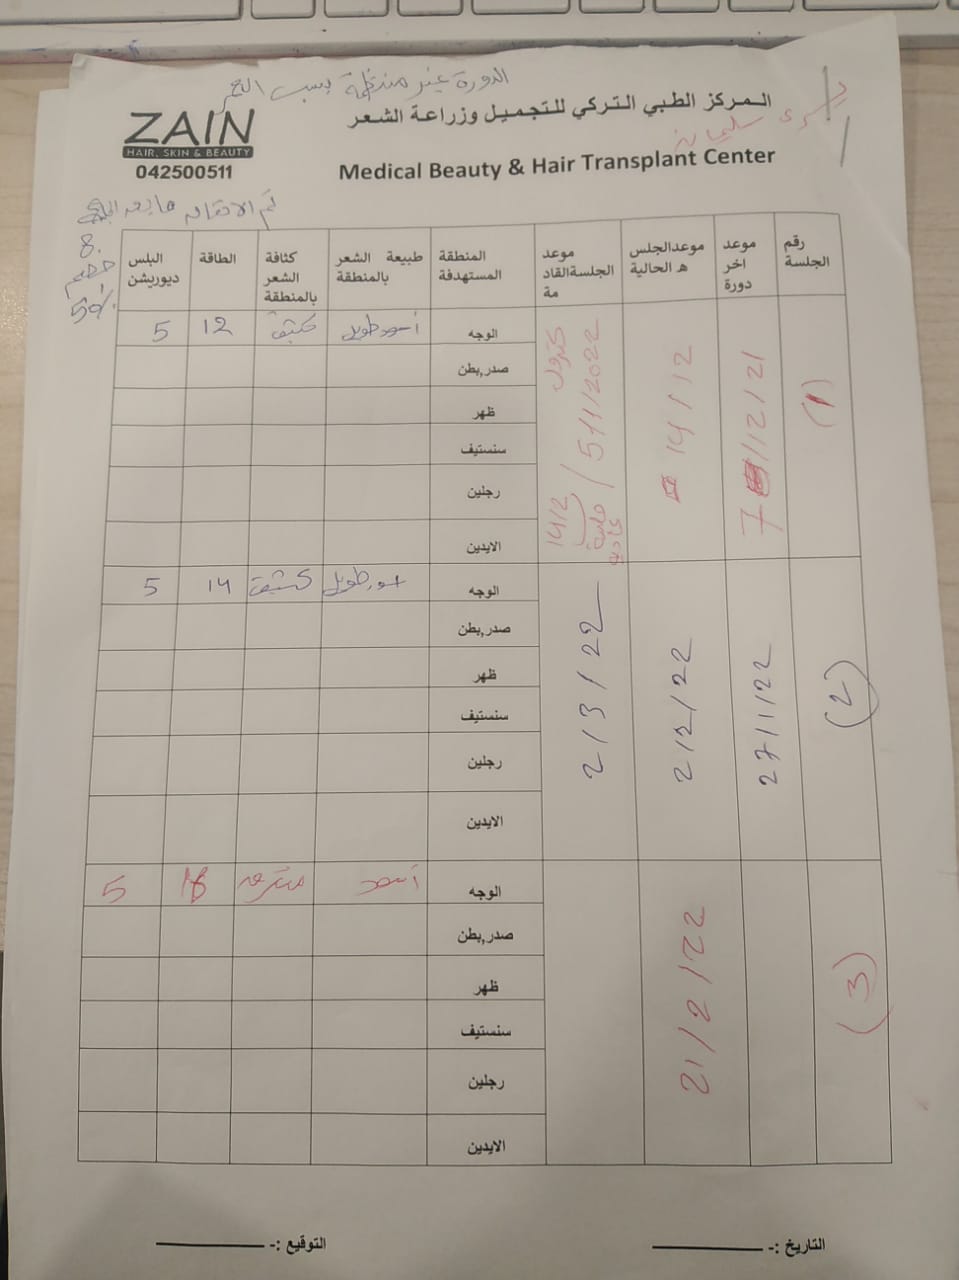 الدورة غير منتظمة بسبب العمر
ZAIN
HAIR, SKIN & BEAUTY
042500511
المركز الطبي التركي للتجميل وزراعة الشعر
Medical Beauty & Hair Transplant Center
يسرى سليمان
تم الاتفاق
8.
خصم
50%
رقم الجلسة
موعد اخر دورة
موعدالجلس ه الحالية
موعد الجلسةالقاد مة
المنطقة المستهدفة
طبيعة الشعر بالمنطقة
كثافة الشعر بالمنطقة
الطاقة
البلس ديوريشن
(1)
7/12/21
14/12
5/1/2022
14/2
الوجه أسود طويل كثيف 12 5
صدر,بطن
ظهر
سنستيف
رجلين
الايدين
(2)
27/1/22
2/2/22
2/3/22
الوجه أسود طويل كثيف 14 5
صدر,بطن
ظهر
سنستيف
رجلين
الايدين
(3)
21/2/22
الوجه أسود 5
صدر,بطن
ظهر
سنستيف
رجلين
الايدين
التاريخ :-
التوقيع :-